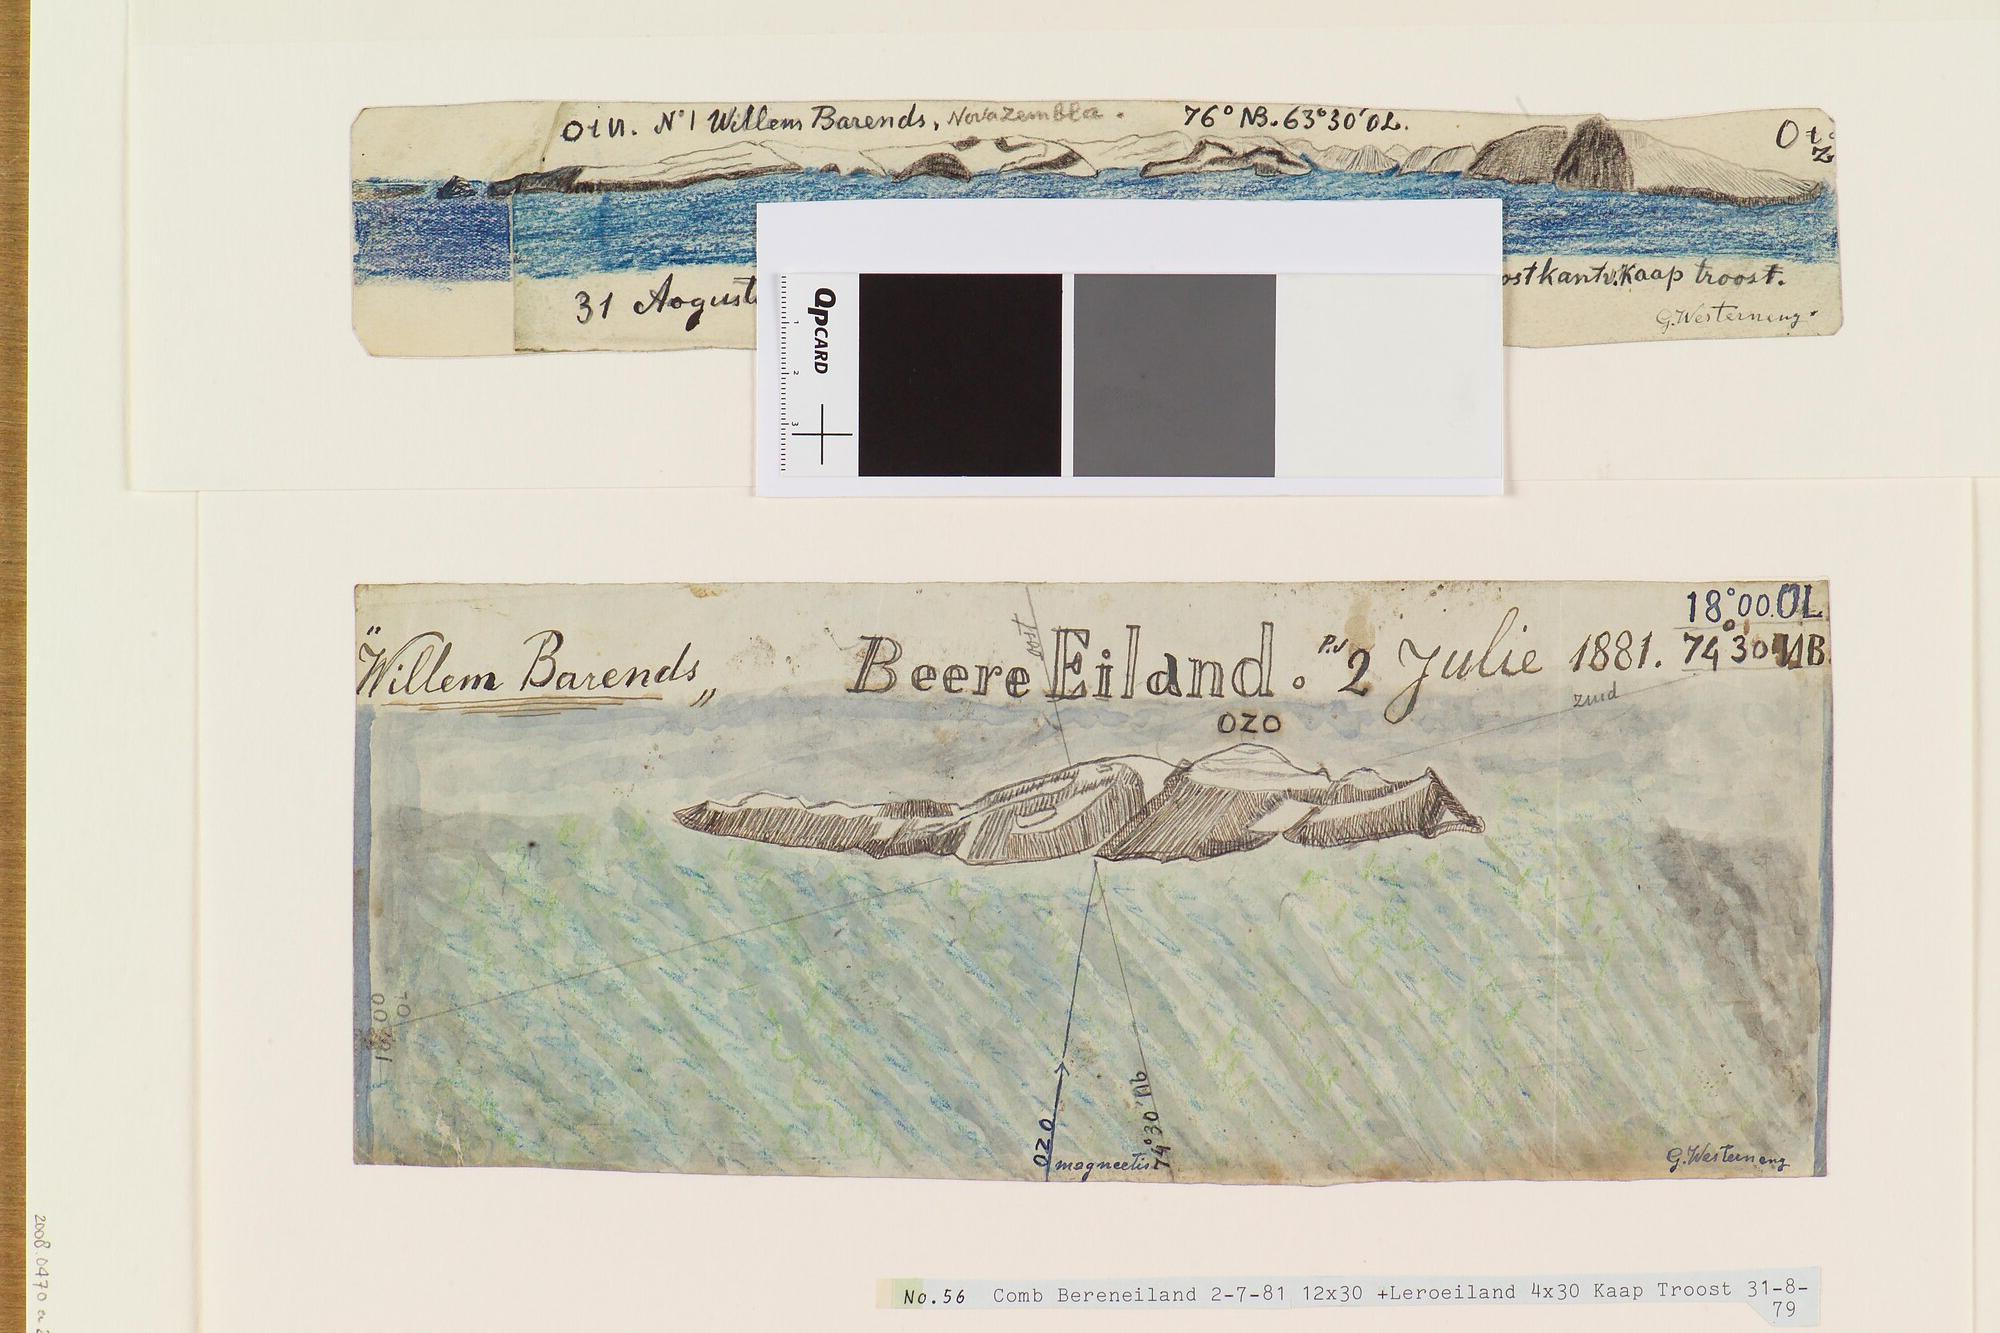 OtN. N°1 Willem Barends, Nova Zembla. 76° NB. 63°30' OL. Ot Z
31 August
ostkant v. Kaap troost.
G. Westerneng.
QPCARD
1
2
3
18°00 OL
"Willem Barends„ Beere Eiland. P.d 2 Julie 1881. 74°30 NB
zuid
OZO
OZO
magneetis
74°30' Nb
G. Westerneng
No.56 Comb Bereneiland 2-7-81 12x30 +Leroeiland 4x30 Kaap Troost 31-8-
79